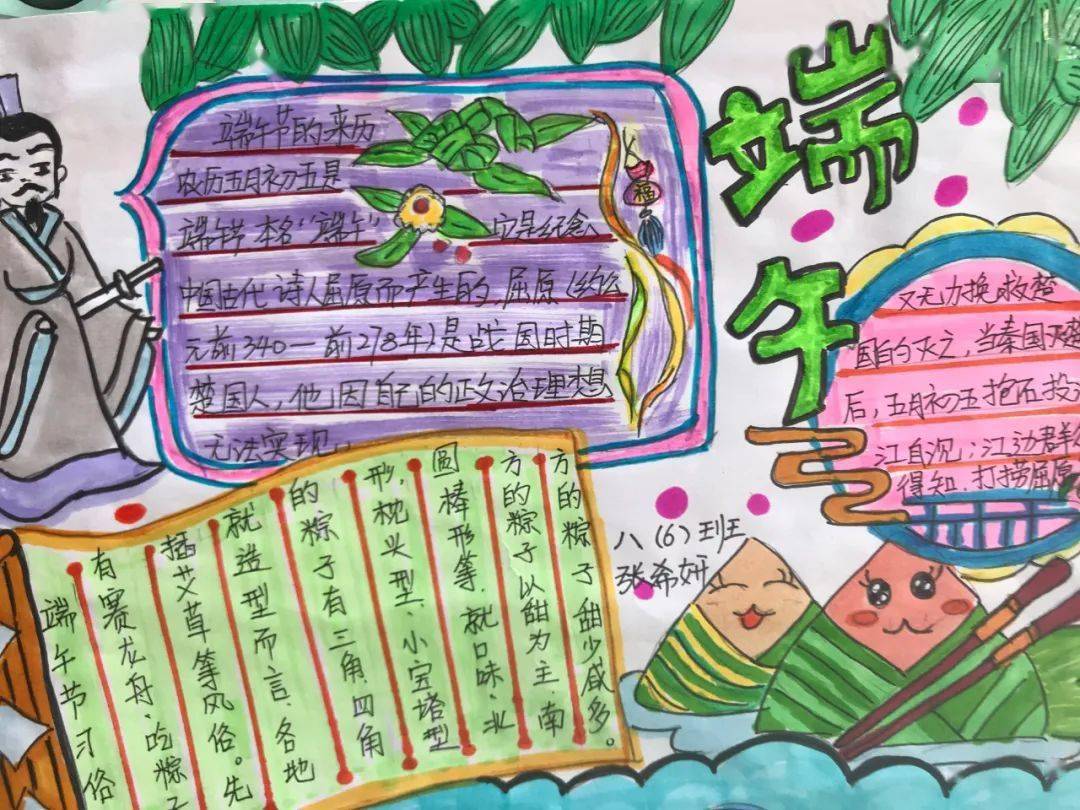 端午
端午节的来历
农历五月初五是
端午节 本名“端午” 应是纪念
中国古代诗人屈原而产生的,屈原(约公
元前340—前278年)是战国时期
楚国人,他因自己的政治理想
无法实现,
福
又无力挽救楚
国的灭之,当秦国灭楚
后,五月初五抱石投
江自沉;江边群
得知,打捞屈原
端午节习俗
有赛龙舟、吃粽子
插艾草等风俗。先
就造型而言、各地
的粽子有三角、四角
形,枕头型、小宝塔型
圆棒形等.就口味,北
方的粽子以甜为主,南
方的粽子甜少咸多。
八(6)班
张希妍